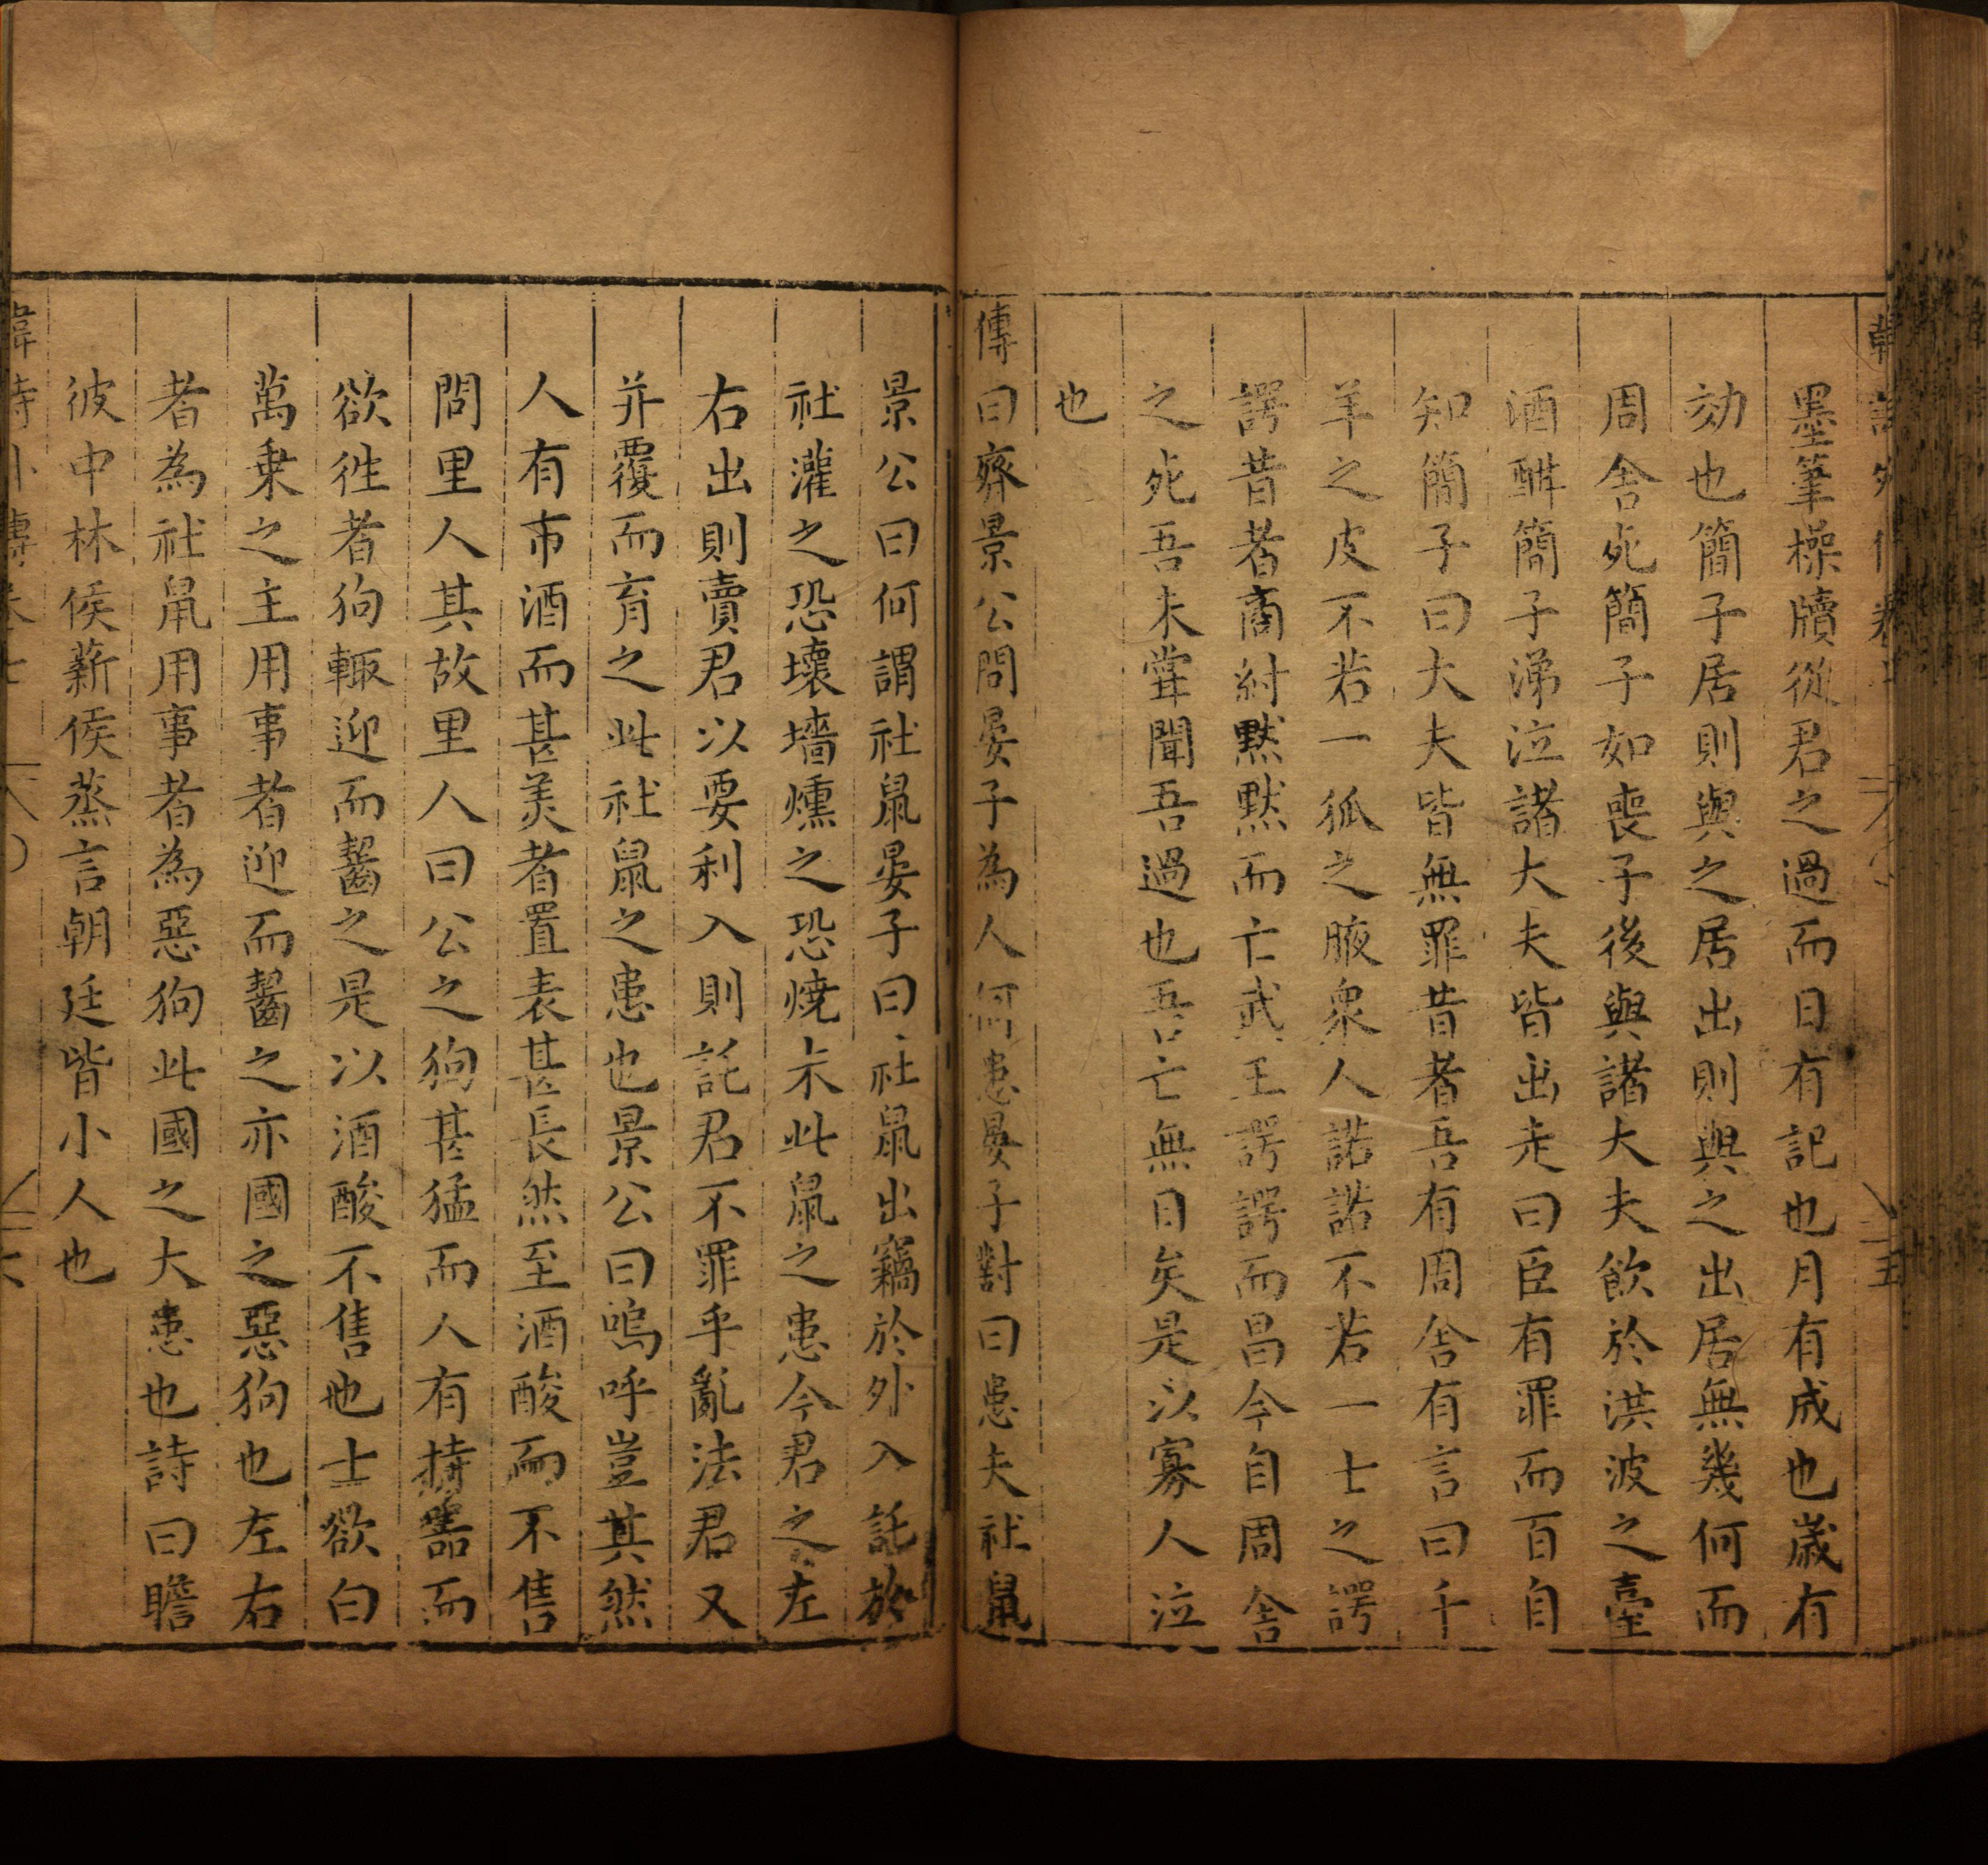 墨筆橾牘從君之過而日有記也月有成也歲有
効也簡子居則與之居出則與之出居無幾何而
周舍死簡子如喪子後與諸大夫飲於洪波之臺
酒酣簡子涕泣諸大夫皆出走曰臣有罪而百自
知簡子曰大夫皆無罪昔者吾有周舍有言曰千
羊之皮不若一狐之腋衆人諾諾不若一士之諤
諤昔者商紂黙黙而亡武王諤諤而昌今自周舍
之死吾未甞聞吾過也吾亡無日矣是以寡人泣
也
傳曰齊景公問晏子為人何患晏子對曰患夫社鼠
景公曰何謂社鼠晏子曰社鼠出竊於外入託於
社灌之恐壞墻燻之恐燒木此鼠之患今君之左
右出則賣君以要利入則託君不罪乎亂法君又
并覆而育之此社鼠之患也景公曰嗚呼豈其然
人有市酒而甚美者置表甚長然至酒酸而不售
問里人其故里人曰公之狗甚猛而人有持器而
欲徃者狗輙迎而齧之是以酒酸不售也士欲白
萬乗之主用事者迎而齧之亦國之惡狗也左右
者為社鼠用事者為惡狗此國之大患也詩曰瞻
彼中林侯薪侯蒸言朝廷皆小人也